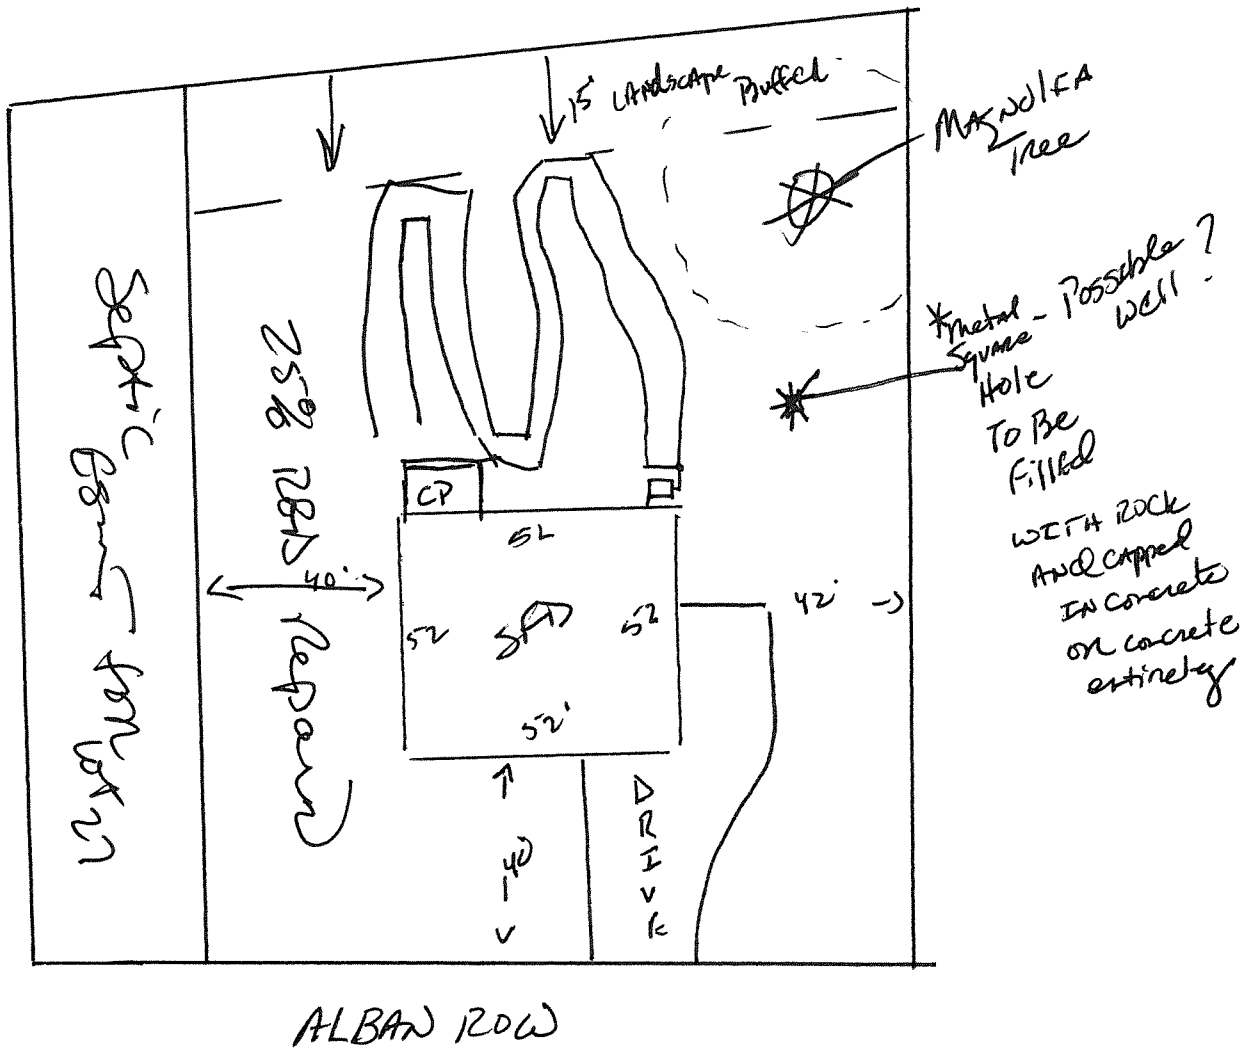 15' LANDSCAPE Buffer
MAGNOLIA
Tree
*metal
Square
Hole
- Possible
Well?
To Be
Filled
WITH ROCK
AND CAPPED
IN Concrete
or concrete
entirety
Septic
for
Lot 27
25%
Repair
CP
52
52
52
52'
40'
42'
40'
DRIVE
ALBAN ROW